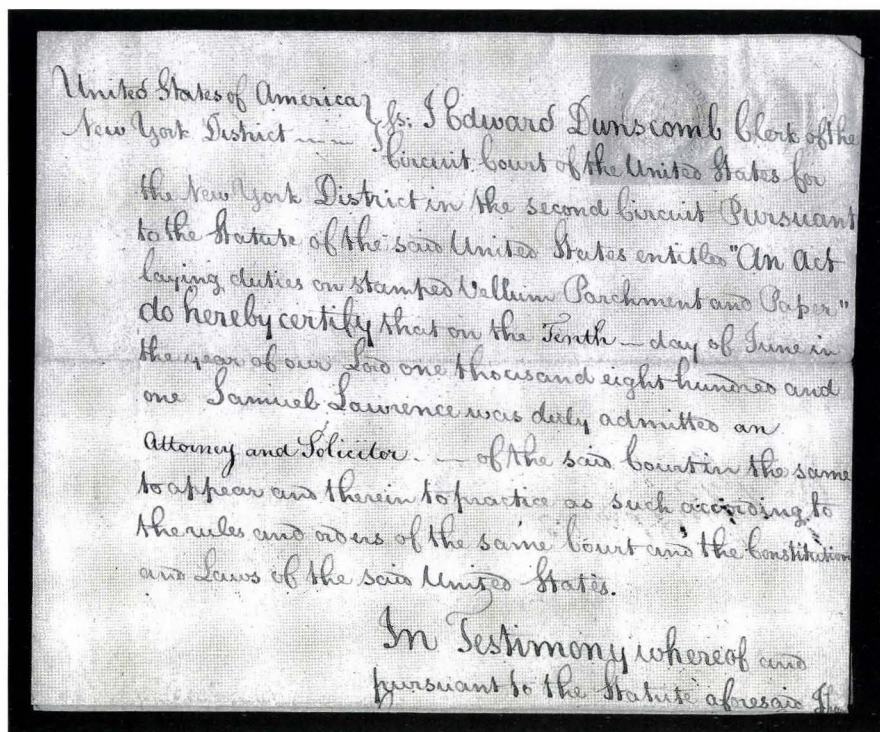 United States of America } ss: I Edward Dunscomb Clerk of the
New York District } Circuit Court of the United States for
the New York District in the second Circuit Pursuant
to the Statute of the said United States entitled "An Act
laying duties on stamped Vellum Parchment and Paper"
do hereby certify that on the Tenth — day of June in
the year of our Lord one thousand eight hundred and
one Samuel Lawrence was duly admitted an
Attorney and Solicitor — of the said Court in the same
to appear and therein to practice as such according to
the rules and orders of the same Court and the Constitution
and Laws of the said United States.
In Testimony whereof and
pursuant to the Statute aforesaid I